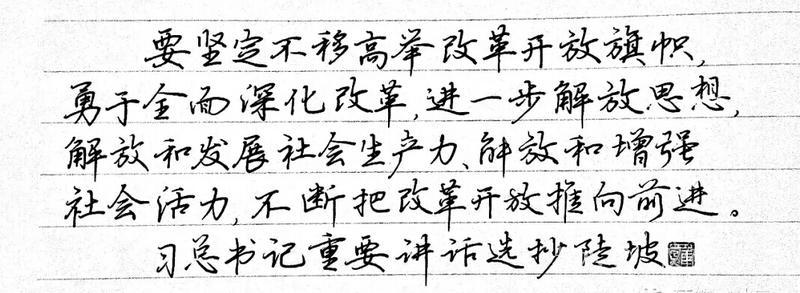 要坚定不移高举改革开放旗帜,
勇于全面深化改革,进一步解放思想,
解放和发展社会生产力、解放和增强
社会活力,不断把改革开放推向前进。
习总书记重要讲话选抄 陆坡